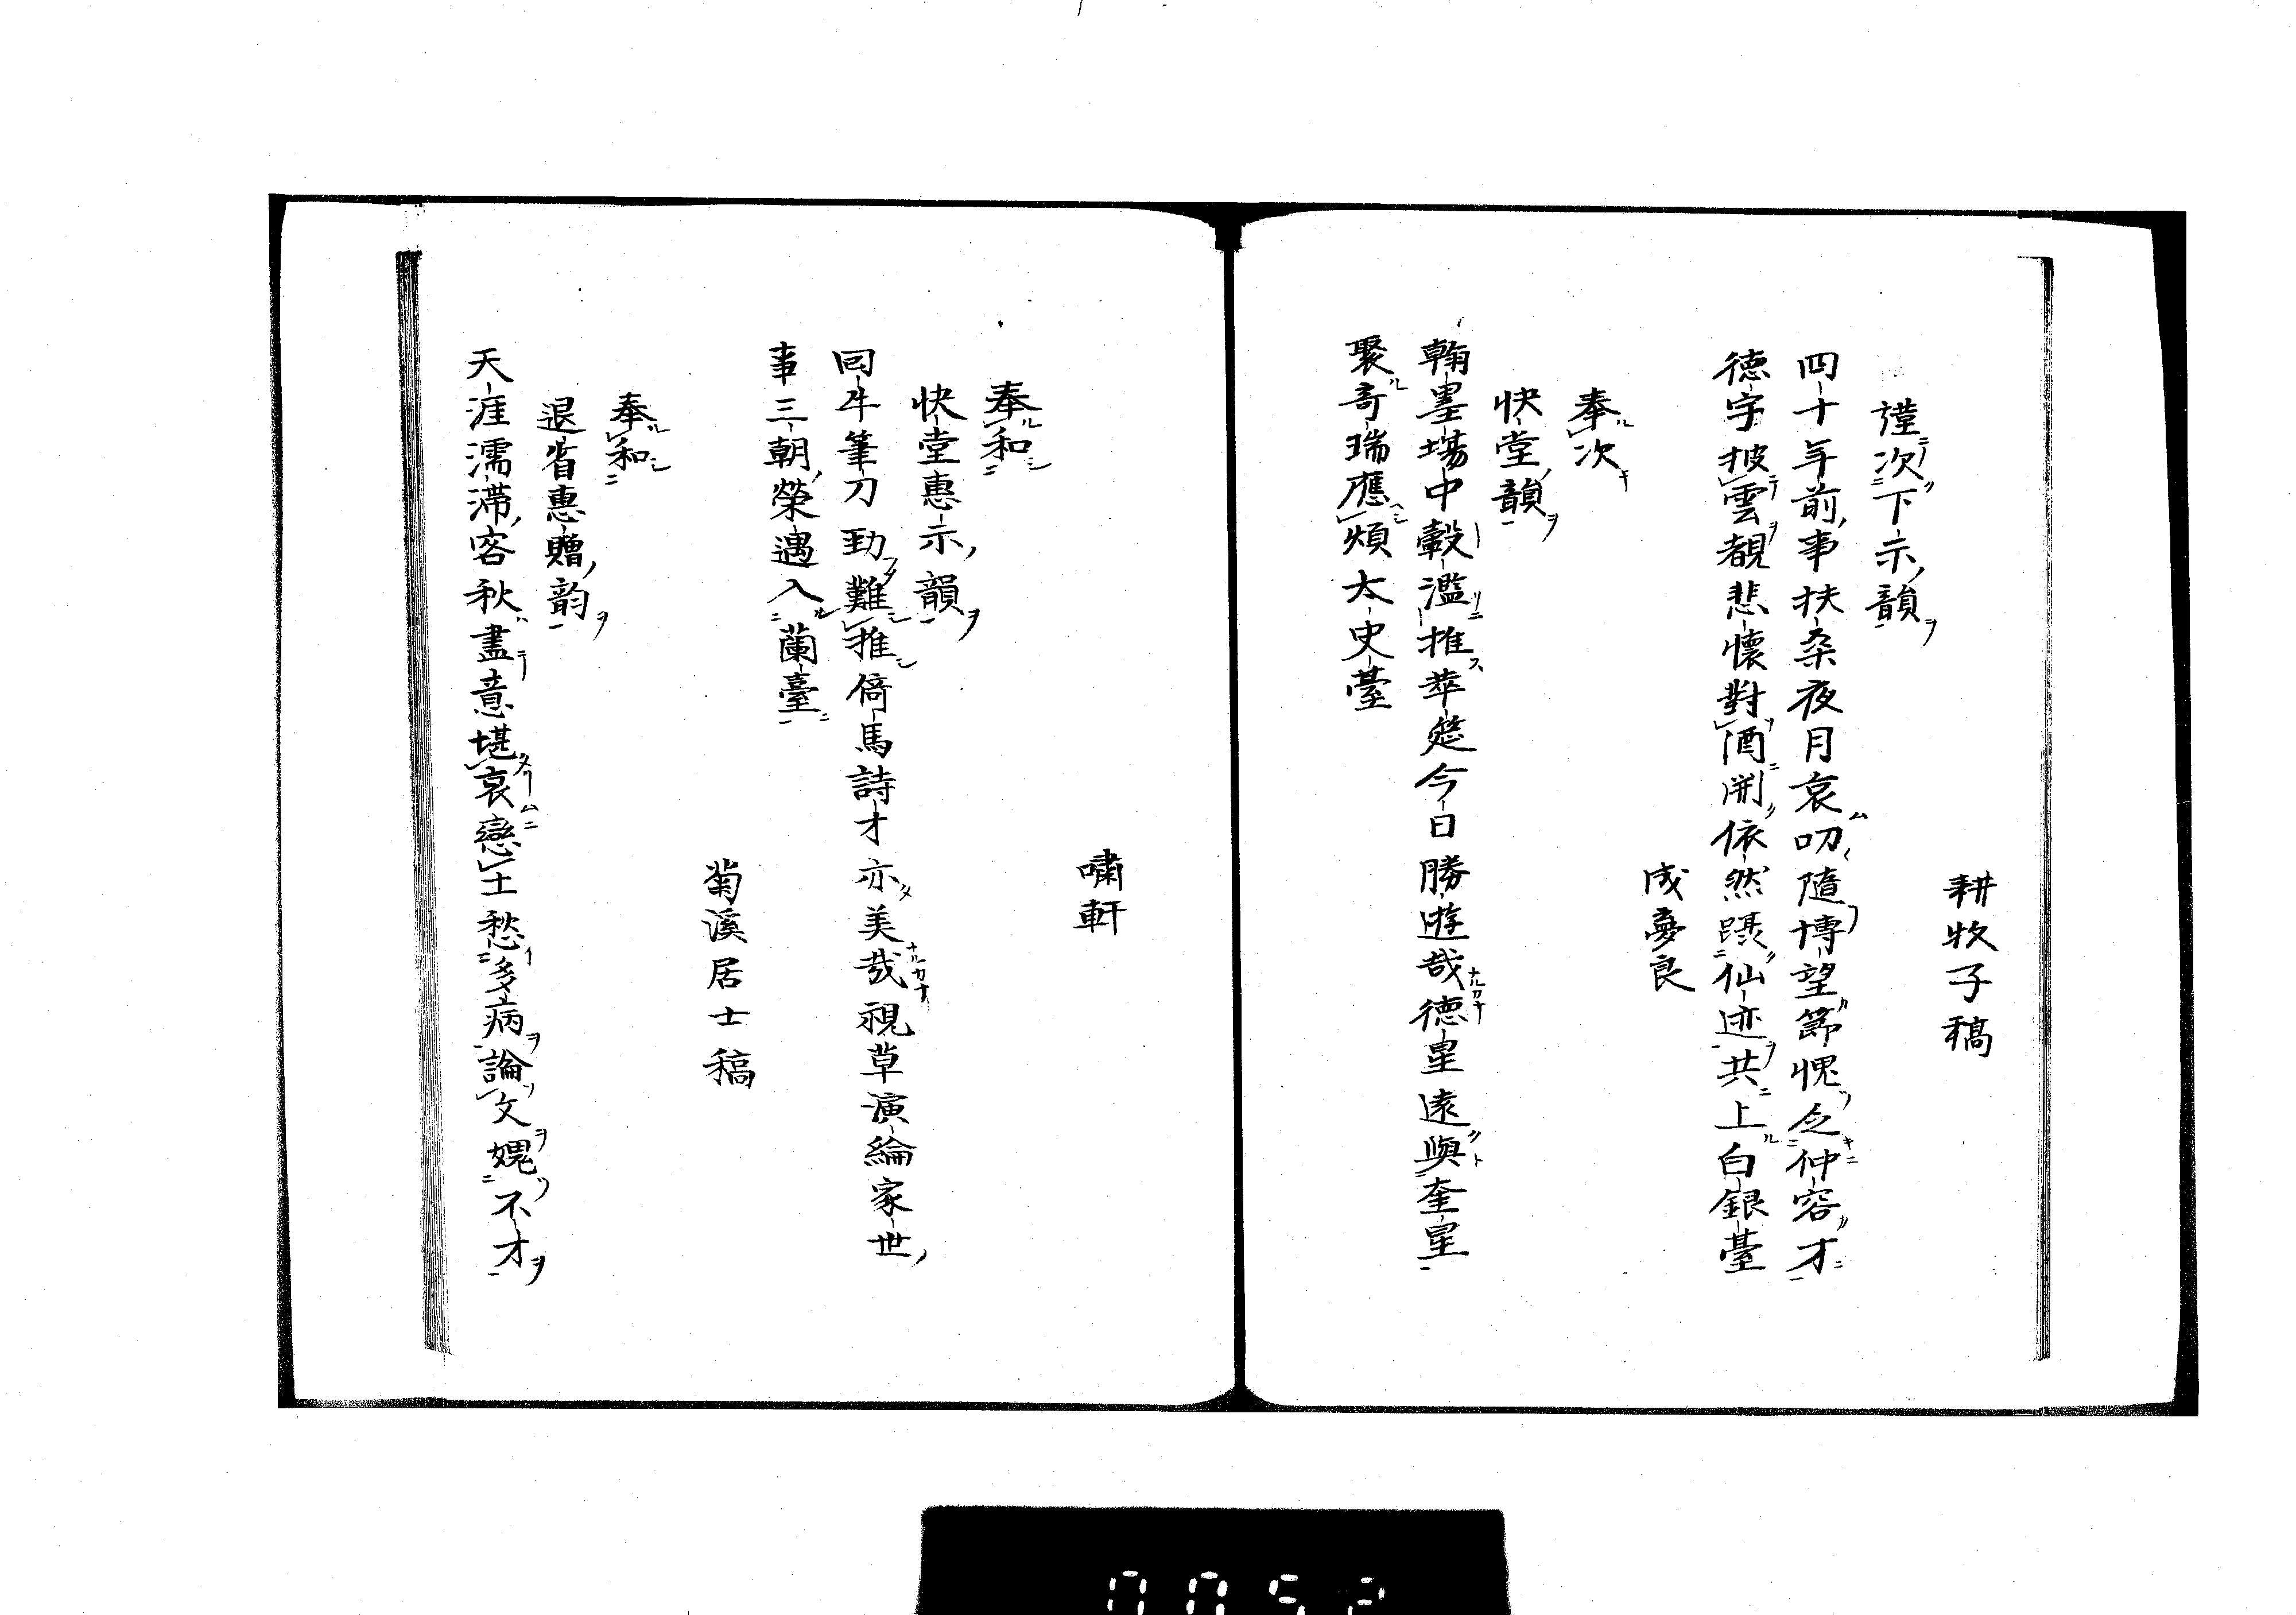 耕牧子稿
謹次下示韻
四十年前事扶桑夜月哀叨隨博望節愧乏仲容才
德宇披雲覩悲懷對酒開依然躡仙迹共上白銀臺
成夢良
奉次
快堂韻
翰墨場中轂濫推華筵今日勝遊哉德星遠與奎星
聚奇瑞應煩太史臺
嘯軒
奉和
快堂惠示韻
囘牛筆刀勁難推倚馬詩才亦美哉視草演綸家世
事三朝榮遇入蘭臺
菊溪居士稿
奉和
退省惠贈韵
天涯濡滯客秋盡意堪哀戀土愁多病論文媿不才